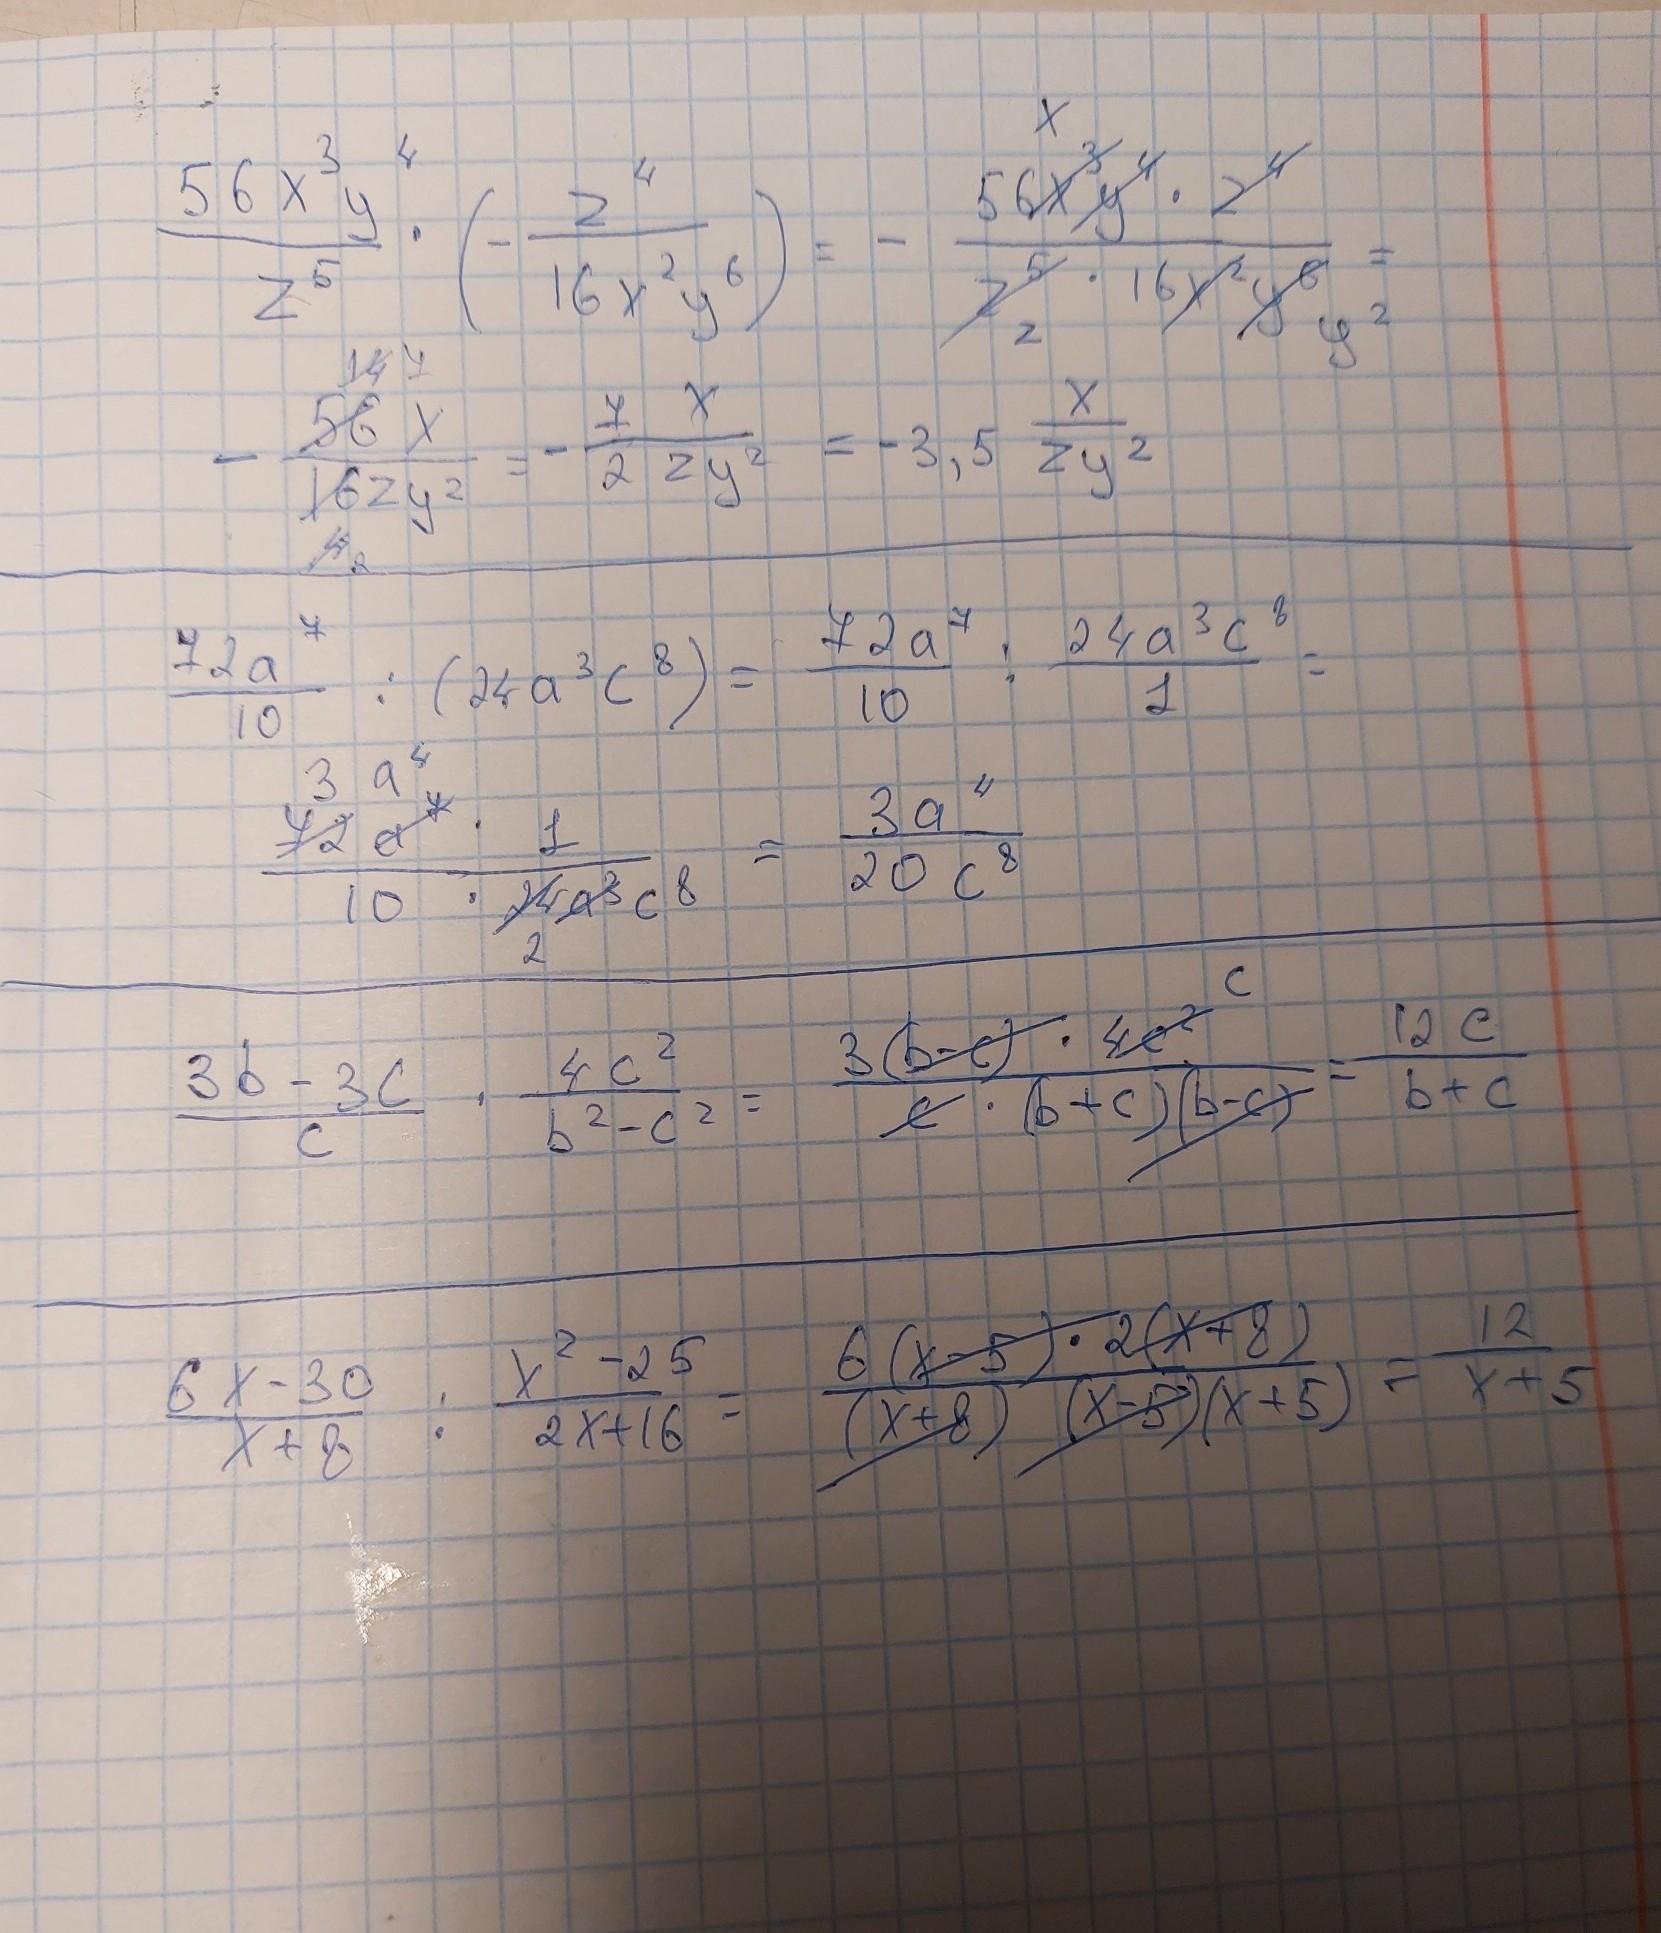 56x³y⁴/z⁵ · (- z⁴/16x²y⁶) = - 56x³y⁴ · z⁴/z⁵ · 16x²y⁶ =
x
z y²
14 7
- 56x/16zy² = - 7/2 x/zy² = -3,5 x/zy²
4 2
72a⁷/10 : (24a³c⁸) = 72a⁷/10 : 24a³c⁸/1 =
3 a⁴
72a⁷ · 1/10 · 24a³c⁸ = 3a⁴/20c⁸
2
c
3b-3c/c · 4c²/b²-c² = 3(b-c) · 4c²/c · (b+c)(b-c) = 12c/b+c
6x-30/x+8 : x²-25/2x+16 = 6(x-5) · 2(x+8)/(x+8) (x-5)(x+5) = 12/x+5